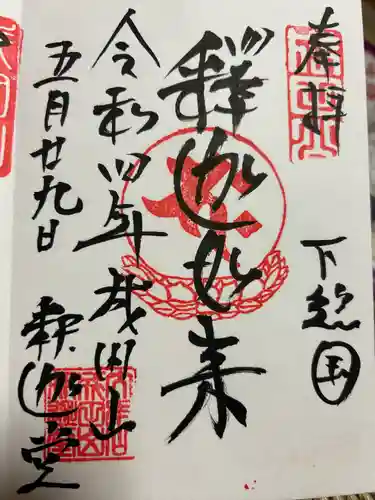 奉拝
下総国
釋迦如来
令和四年成田山
五月廿九日
釈迦堂